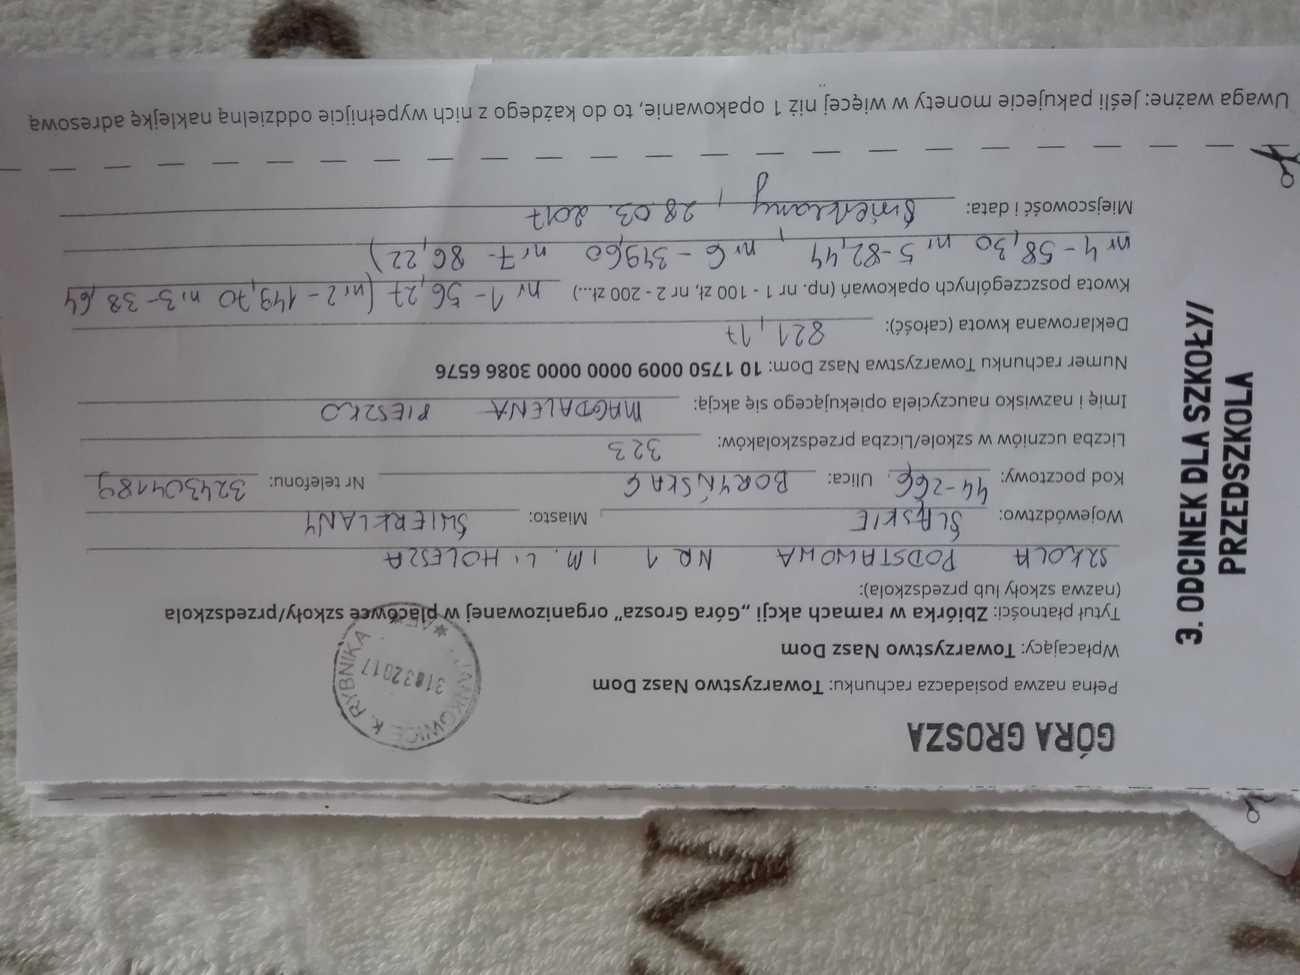 GÓRA GROSZA
Pełna nazwa posiadacza rachunku: Towarzystwo Nasz Dom
Wpłacający: Towarzystwo Nasz Dom
Tytuł płatności: Zbiórka w ramach akcji „Góra Grosza" organizowanej w placówce szkoły/przedszkola
(nazwa szkoły lub przedszkola):
SZKOŁA PODSTAWOWA NR 1 IM. L. HOLESZA
Województwo: ŚLĄSKIE Miasto: ŚWIERKLANY
Kod pocztowy: 44-266 Ulica: BORYŃSKA 6 Nr telefonu: 324304189
Liczba uczniów w szkole/Liczba przedszkolaków: 323
Imię i nazwisko nauczyciela opiekującego się akcją: MAGDALENA PIESZKO
Numer rachunku Towarzystwa Nasz Dom: 10 1750 0009 0000 0000 3086 6576
Deklarowana kwota (całość): 821,17
Kwota poszczególnych opakowań (np. nr 1 - 100 zł, nr 2 - 200 zł...) nr 1 - 56,27 (nr 2 - 149,70 nr 3 - 38,64
nr 4 - 58,30 nr 5 - 82,44 nr 6 - 349,60 nr 7 - 86,22)
Miejscowość i data: Świerklany, 28.03.2017
Uwaga ważne: jeśli pakujecie monety w więcej niż 1 opakowanie, to do każdego z nich wypełnijcie oddzielną naklejkę adresową
3. ODCINEK DLA SZKOŁY/
PRZEDSZKOLA
JANKOWICE K. RYBNIKA
31032017